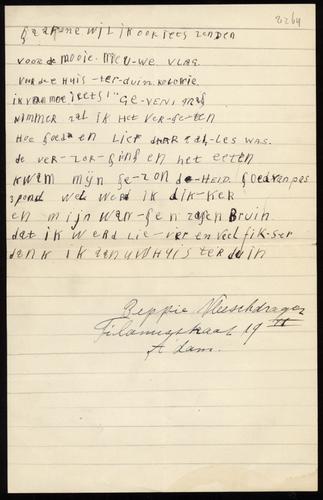 2264
gaarne wil ik ook iets zenden
voor de mooie nieu-we vlag
van de Huis-ter-duin kolonie
ik van moe iets! " ge-ven, graag
nimmer zal ik het ver-ge-ten
hoe goed en lief daar al-les was.
de ver-zor-ging en het eeten
kwam mijn ge-zond-HEID goed van pas
pond werd ik dik-ker
en mijn wan-gen zagen Bruin
dat ik werd lie-ver en veel fik-ser
dank ik aan uw Huis ter duin
Beppie Vleeschdrager
19 II
A'dam.